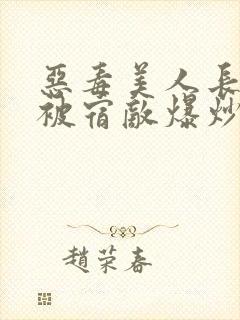 惡毒美人長
被宿敵爆炒
趙荣春